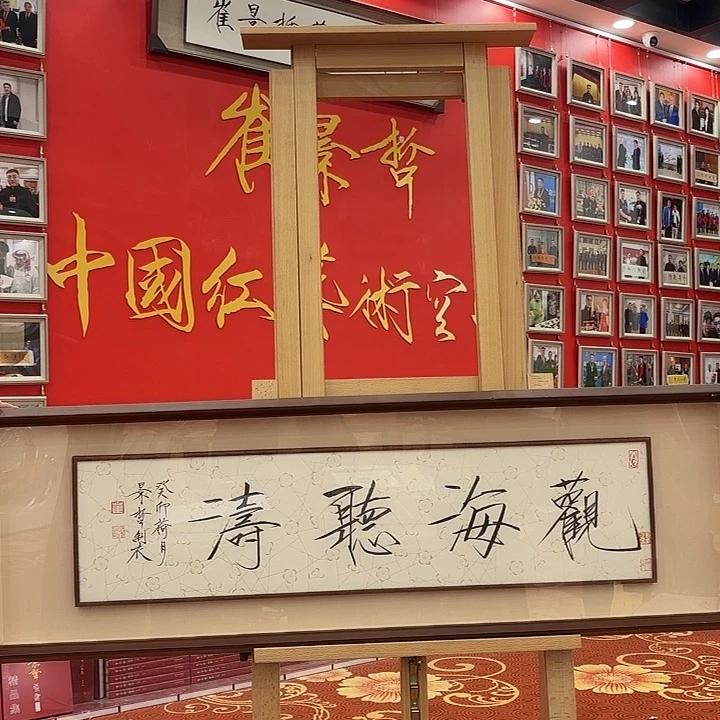 崔景哲
崔景哲
中國红艺術空
觀海聽濤
癸卯荷月
景哲